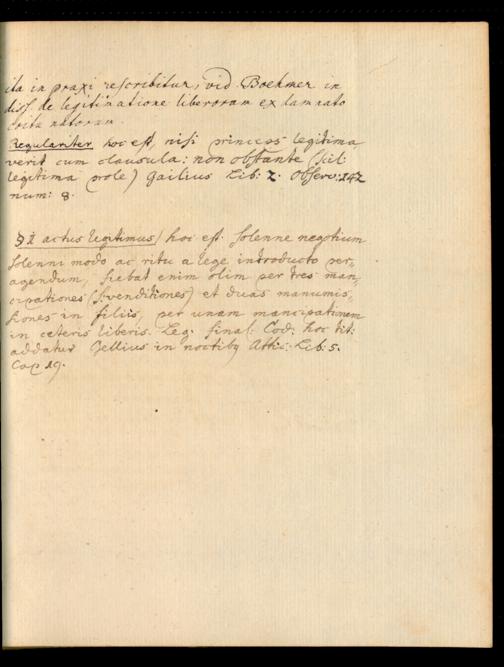 ita in praxi rescribitur, vid Boehmer in
diss. de legitimatione liberorum ex damnato
coitu natorum.
Regulariter hoc est, nisi princeps legitima
verit cum clausula: non obstante (scil:
legitima prole) Gailius Lib: 2. Observ: 142
num: 8.
§ 2 actus legitimus / hoc est. solenne negotium
solenni modo ac ritu a lege introducto per,,
agendum, fiebat enim olim per tres man,,
cipationes (s. venditiones) et duas manumis,,
siones in filiis, per unam mancipationem
in ceteris liberis. Leg. final. Cod: hoc tit:
addatur Gellius in noctibq Attic. Lib: 5.
Cap 19.